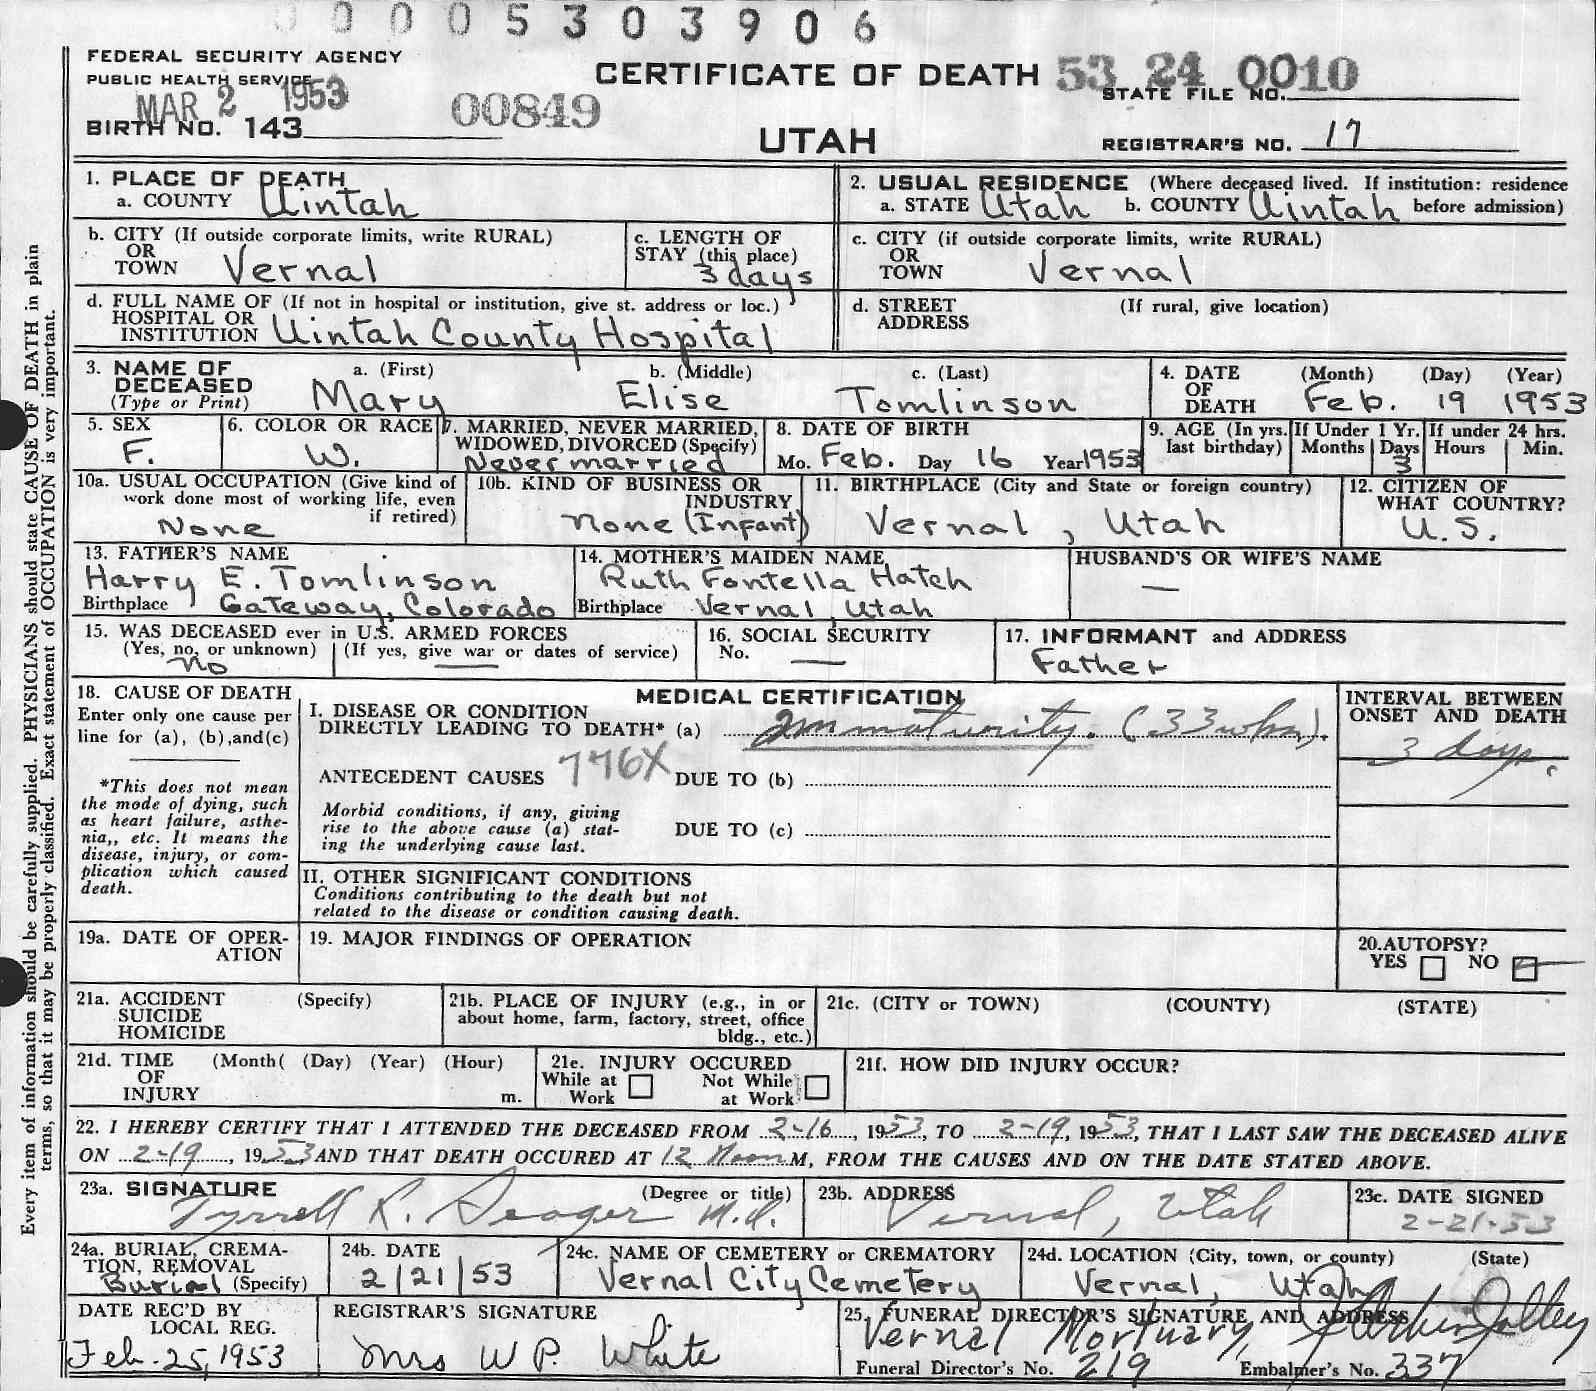 0 0 0 5 3 0 3 9 0 6
FEDERAL SECURITY AGENCY
PUBLIC HEALTH SERVICE
MAR 2 1953
BIRTH NO. 143
00849
CERTIFICATE OF DEATH
UTAH
53 24 0010
STATE FILE NO.
REGISTRAR'S NO. 17
1. PLACE OF DEATH
a. COUNTY Uintah
2. USUAL RESIDENCE (Where deceased lived. If institution: residence
a. STATE Utah b. COUNTY Uintah before admission)
b. CITY (If outside corporate limits, write RURAL)
OR
TOWN Vernal
c. LENGTH OF
STAY (this place)
3 days
c. CITY (if outside corporate limits, write RURAL)
OR
TOWN Vernal
d. FULL NAME OF (If not in hospital or institution, give st. address or loc.)
HOSPITAL OR
INSTITUTION Uintah County Hospital
d. STREET (If rural, give location)
ADDRESS
3. NAME OF a. (First) b. (Middle) c. (Last)
DECEASED
(Type or Print) Mary Elise Tomlinson
4. DATE (Month) (Day) (Year)
OF
DEATH Feb. 19 1953
5. SEX
F.
6. COLOR OR RACE
W.
7. MARRIED, NEVER MARRIED,
WIDOWED, DIVORCED (Specify)
Never married
8. DATE OF BIRTH
Mo. Feb. Day 16 Year 1953
9. AGE (In yrs. If Under 1 Yr. If under 24 hrs.
last birthday) Months Days Hours Min.
3
10a. USUAL OCCUPATION (Give kind of
work done most of working life, even
if retired)
None
10b. KIND OF BUSINESS OR
INDUSTRY
none (Infant)
11. BIRTHPLACE (City and State or foreign country)
Vernal, Utah
12. CITIZEN OF
WHAT COUNTRY?
U.S.
13. FATHER'S NAME
Harry E. Tomlinson
Birthplace Gateway, Colorado
14. MOTHER'S MAIDEN NAME
Ruth Fontella Hatch
Birthplace Vernal, Utah
HUSBAND'S OR WIFE'S NAME
—
15. WAS DECEASED ever in U.S. ARMED FORCES
(Yes, no, or unknown) (If yes, give war or dates of service)
no —
16. SOCIAL SECURITY
No. —
17. INFORMANT and ADDRESS
Father
18. CAUSE OF DEATH
Enter only one cause per
line for (a), (b),and(c)
*This does not mean
the mode of dying, such
as heart failure, asthe-
nia,, etc. It means the
disease, injury, or com-
plication which caused
death.
MEDICAL CERTIFICATION
I. DISEASE OR CONDITION
DIRECTLY LEADING TO DEATH* (a) Immaturity. (33 wks).
ANTECEDENT CAUSES 776X DUE TO (b)
Morbid conditions, if any, giving
rise to the above cause (a) stat-
ing the underlying cause last.
DUE TO (c)
II. OTHER SIGNIFICANT CONDITIONS
Conditions contributing to the death but not
related to the disease or condition causing death.
INTERVAL BETWEEN
ONSET AND DEATH
3 days.
19a. DATE OF OPER-
ATION
19. MAJOR FINDINGS OF OPERATION
20.AUTOPSY?
YES NO
21a. ACCIDENT (Specify)
SUICIDE
HOMICIDE
21b. PLACE OF INJURY (e.g., in or
about home, farm, factory, street, office
bldg., etc.)
21c. (CITY or TOWN) (COUNTY) (STATE)
21d. TIME (Month( (Day) (Year) (Hour)
OF
INJURY m.
21e. INJURY OCCURED
While at Not While
Work at Work
21f. HOW DID INJURY OCCUR?
22. I HEREBY CERTIFY THAT I ATTENDED THE DECEASED FROM 2-16, 1953, TO 2-19, 1953, THAT I LAST SAW THE DECEASED ALIVE
ON 2-19, 1953 AND THAT DEATH OCCURED AT 12 Noon M, FROM THE CAUSES AND ON THE DATE STATED ABOVE.
23a. SIGNATURE (Degree or title)
Tyrrell R. Seager M.D.
23b. ADDRESS
Vernal, Utah
23c. DATE SIGNED
2-21-53
24a. BURIAL, CREMA-
TION, REMOVAL
Burial (Specify)
24b. DATE
2/21/53
24c. NAME OF CEMETERY or CREMATORY
Vernal City Cemetery
24d. LOCATION (City, town, or county) (State)
Vernal, Utah
DATE REC'D BY
LOCAL REG.
Feb. 25, 1953
REGISTRAR'S SIGNATURE
Mrs W P. White
25. FUNERAL DIRECTOR'S SIGNATURE AND ADDRESS
Vernal Mortuary, Jolley
Funeral Director's No. 219 Embalmer's No. 337
Every item of information should be carefully supplied. PHYSICIANS should state CAUSE OF DEATH in plain
terms, so that it may be properly classified. Exact statement of OCCUPATION is very important.